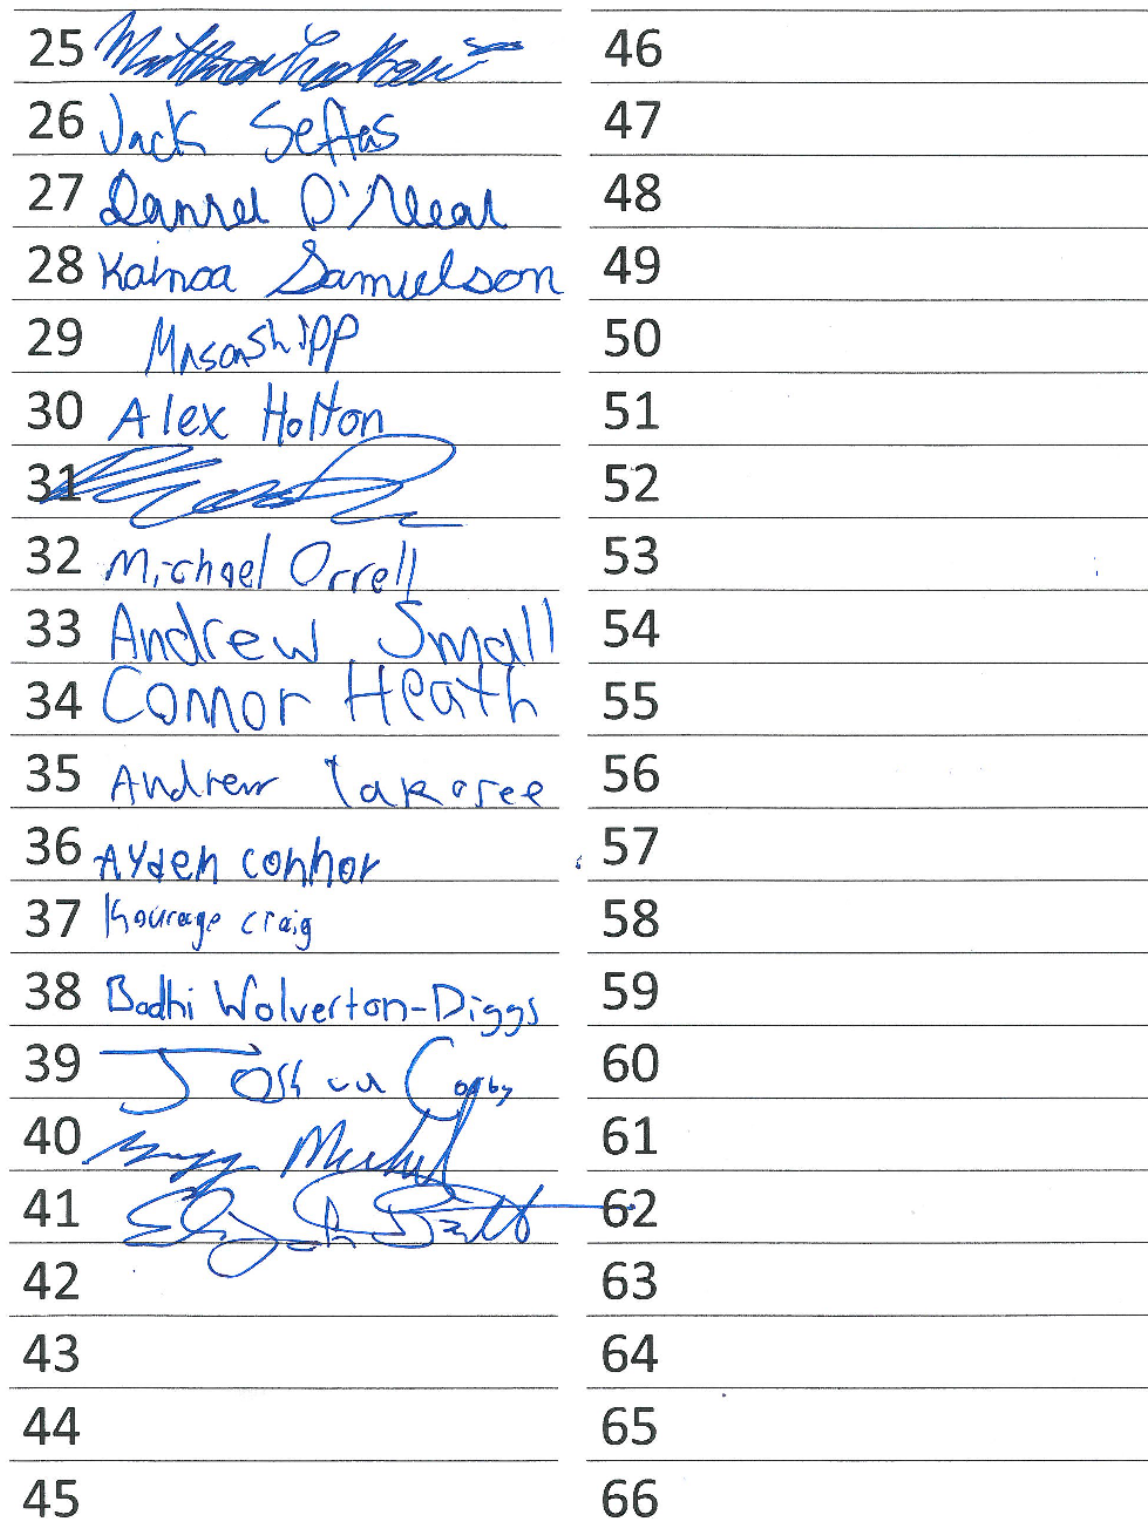 25 Matthew
26 Jack Seftas
27 Daniel O'Neal
28 Kainoa Samuelson
29 Mason Shipp
30 Alex Holton
31
32 Michael Orrell
33 Andrew Small
34 Connor Heath
35 Andrew
36 Ayden Connor
37 Kourage Craig
38 Bodhi Wolverton-Diggs
39 Joshua
40
41 Elijah
42
43
44
45
46
47
48
49
50
51
52
53
54
55
56
57
58
59
60
61
62
63
64
65
66